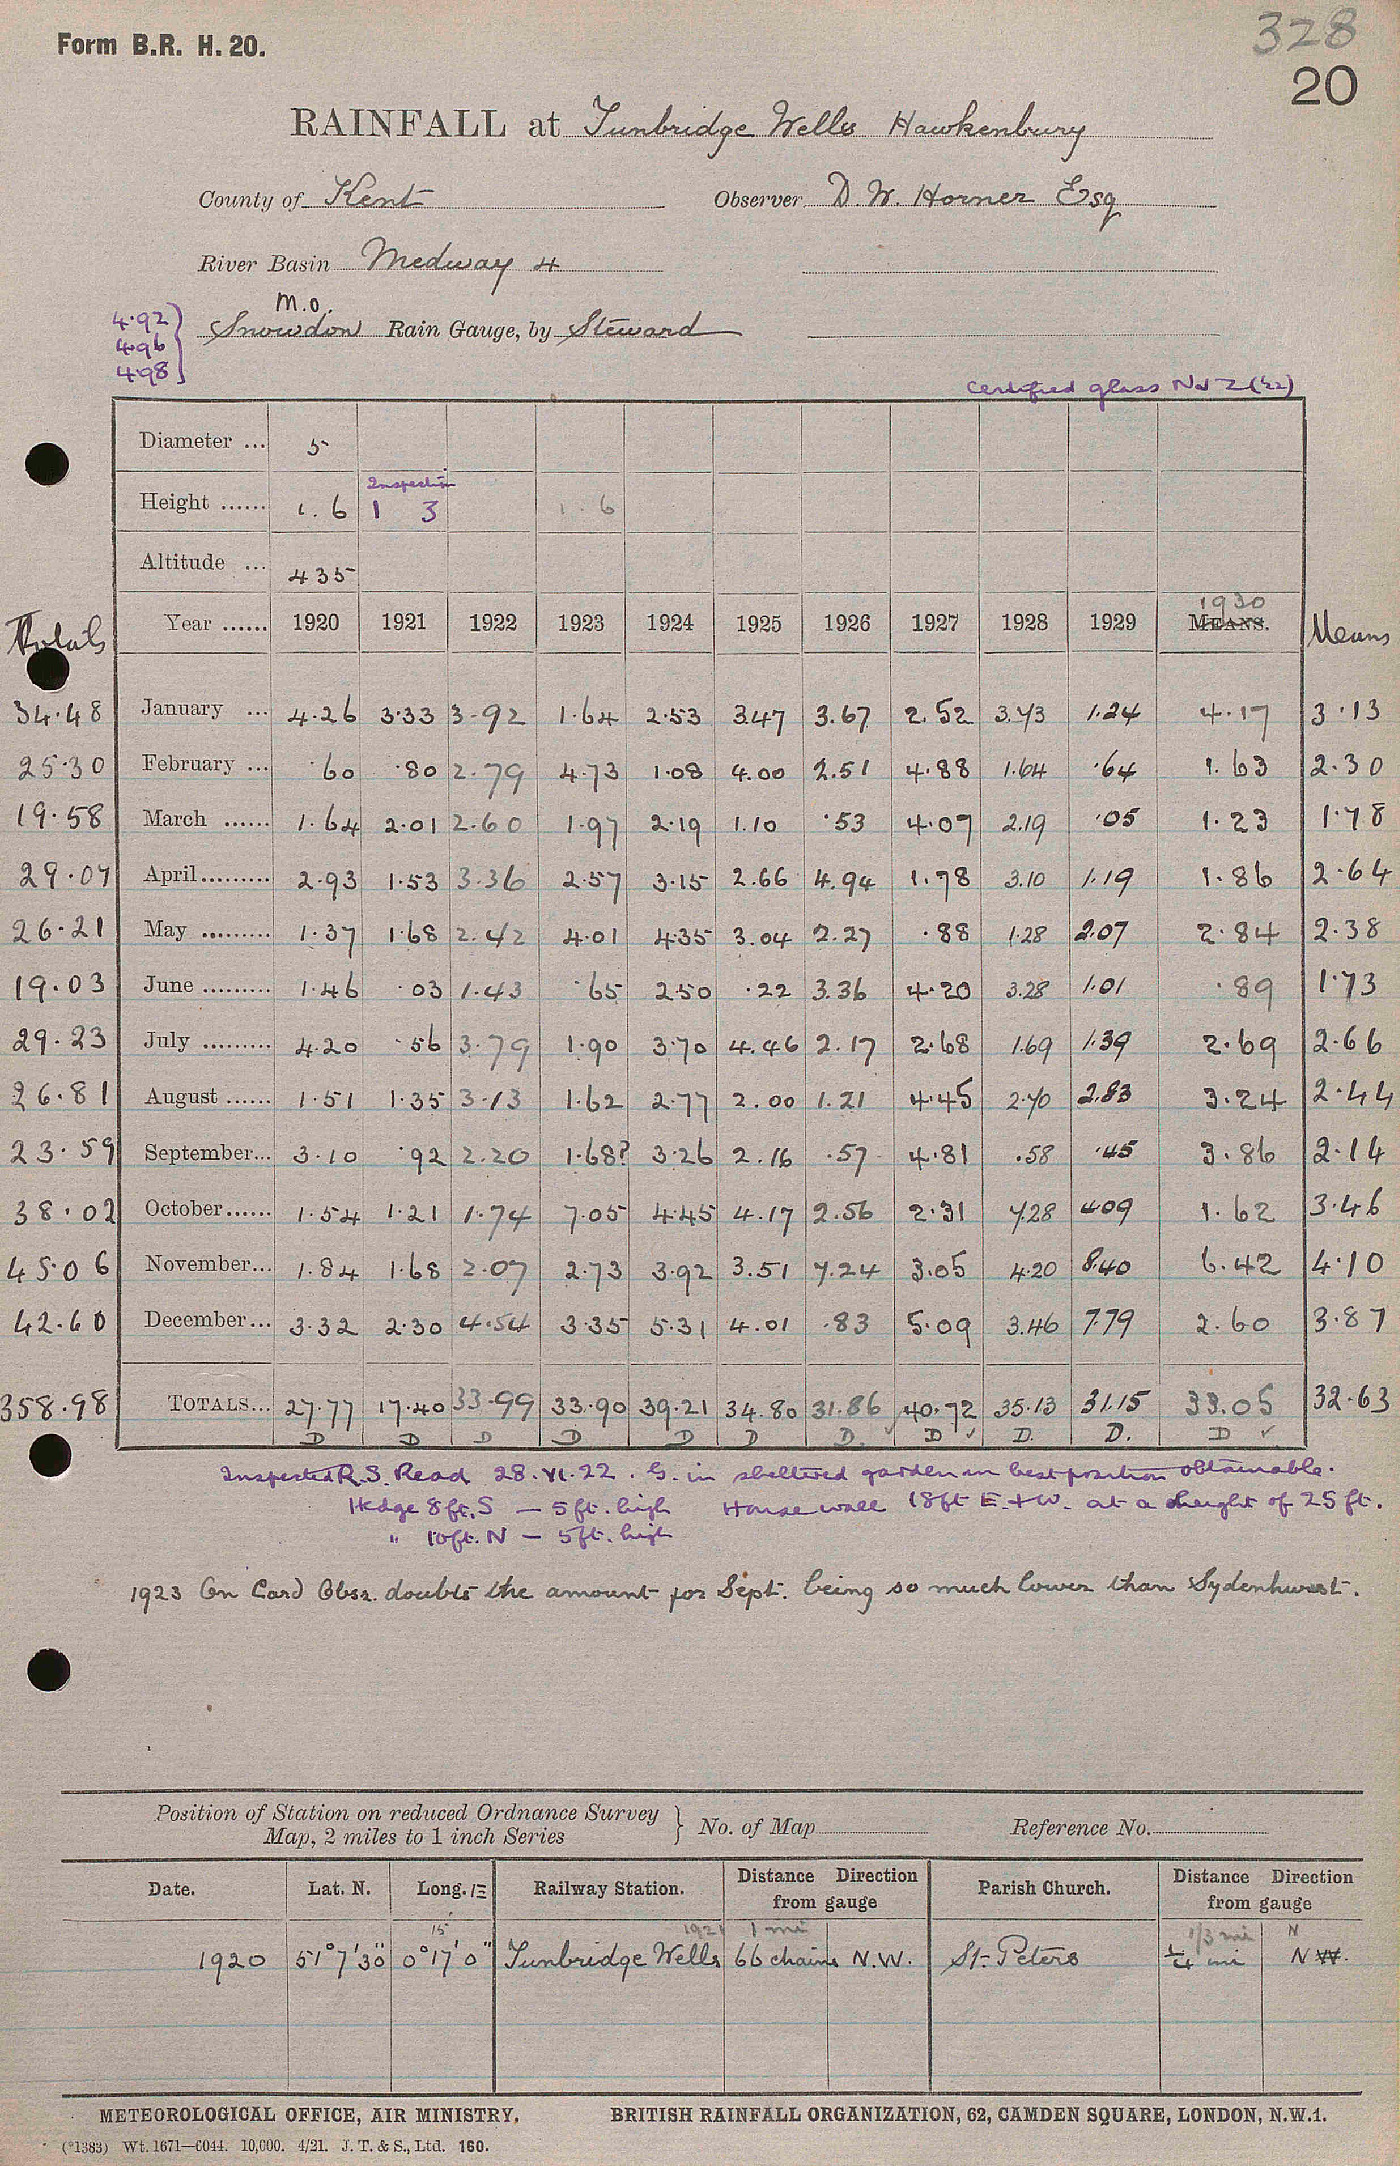 Form B.R. H. 20.
328
20
RAINFALL at Tunbridge Wells Hawkenbury
County of Kent Observer D. W. Horner Esq
River Basin Medway 4
M.O.
4.92
4.96
4.98
Snowdon Rain Gauge, by Steward
Certified glass
Diameter ... 5
Inspection
Height ...... 1. 6 1 3 1. 6
Altitude ... 435
1930
Totals Year ...... 1920 1921 1922 1923 1924 1925 1926 1927 1928 1929 MEANS. Means
34.48 January ... 4.26 3.33 3.92 1.64 2.53 3.47 3.67 2.52 3.73 1.24 4.17 3.13
25.30 February ... .60 .80 2.79 4.73 1.08 4.00 2.51 4.88 1.64 .64 1.63 2.30
19.58 March ...... 1.64 2.01 2.60 1.97 2.19 1.10 .53 4.07 2.19 .05 1.23 1.78
29.07 April......... 2.93 1.53 3.36 2.57 3.15 2.66 4.94 1.78 3.10 1.19 1.86 2.64
26.21 May ......... 1.37 1.68 2.42 4.01 4.35 3.04 2.27 .88 1.28 2.07 2.84 2.38
19.03 June ......... 1.46 .03 1.43 .65 2.50 .22 3.36 4.20 3.28 1.01 .89 1.73
29.23 July ......... 4.20 .56 3.79 1.90 3.70 4.46 2.17 2.68 1.69 1.39 2.69 2.66
26.81 August ...... 1.51 1.35 3.13 1.62 2.77 2.00 1.21 4.45 2.70 2.83 3.24 2.44
23.59 September... 3.10 .92 2.20 1.68? 3.26 2.16 .57 4.81 .58 .45 3.86 2.14
38.02 October...... 1.54 1.21 1.74 7.05 4.45 4.17 2.56 2.31 7.28 4.09 1.62 3.46
45.06 November... 1.84 1.68 2.07 2.73 3.92 3.51 7.24 3.05 4.20 8.40 6.42 4.10
42.60 December... 3.32 2.30 4.54 3.35 5.31 4.01 .83 5.09 3.46 7.79 2.60 3.87
358.98 TOTALS... 27.77 17.40 33.99 33.90 39.21 34.80 31.86 40.72 35.13 31.15 33.05 32.63
D D D D D D D. D ✓ D. D. D ✓
Inspected R.S. Read 28.VI.22. G. in sheltered garden in best position obtainable.
Hedge 8ft. S — 5ft. high House wall 18ft E. + W. at a height of 25 ft.
" 10ft. N — 5ft. high
1923 On Card Obsr. doubts the amount for Sept. being so much lower than Sydenhurst.
Position of Station on reduced Ordnance Survey
Map, 2 miles to 1 inch Series } No. of Map Reference No.
Date. Lat. N. Long. E Railway Station. Distance Direction from gauge Parish Church. Distance Direction from gauge
15 1921 1 mi 1/3 mi N
1920 51°7'30" 0°17'0" Tunbridge Wells 66 chains N.W. St. Peters 1/4 mi N W.
METEOROLOGICAL OFFICE, AIR MINISTRY. BRITISH RAINFALL ORGANIZATION, 62, CAMDEN SQUARE, LONDON, N.W.1.
(*1383) Wt. 1671—6044. 10,000. 4/21. J. T. & S., Ltd. 160.